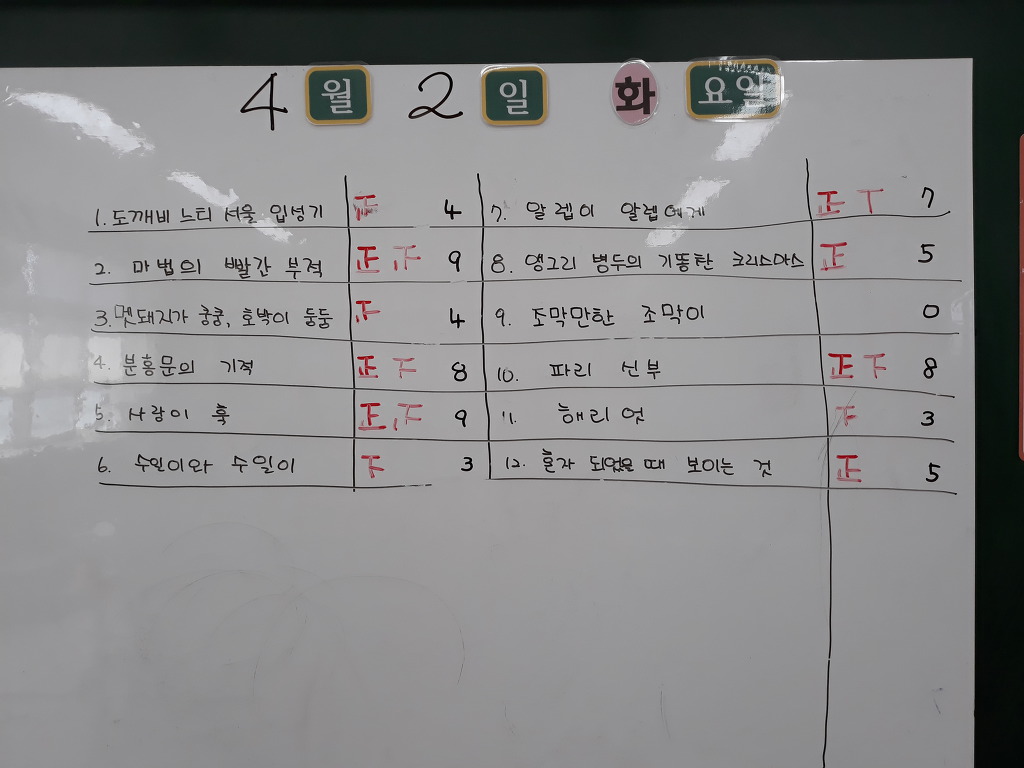 4 월 2 일 화 요일
1. 도깨비 느티 서울 입성기 正 4
2. 마법의 빨간 부적 正 正 9
3. 멧돼지가 쿵쿵, 호박이 둥둥 正 4
4. 분홍문의 기적 正 下 8
5. 사랑이 훅 正 正 9
6. 수일이와 수일이 下 3
7. 알렙이 알렙에게 正 丅 7
8. 앵그리 병두의 기똥찬 크리스마스 正 5
9. 조막만한 조막이 0
10. 파리 신부 正 下 8
11. 해리엇 下 3
12. 혼자 되었을 때 보이는 것 正 5